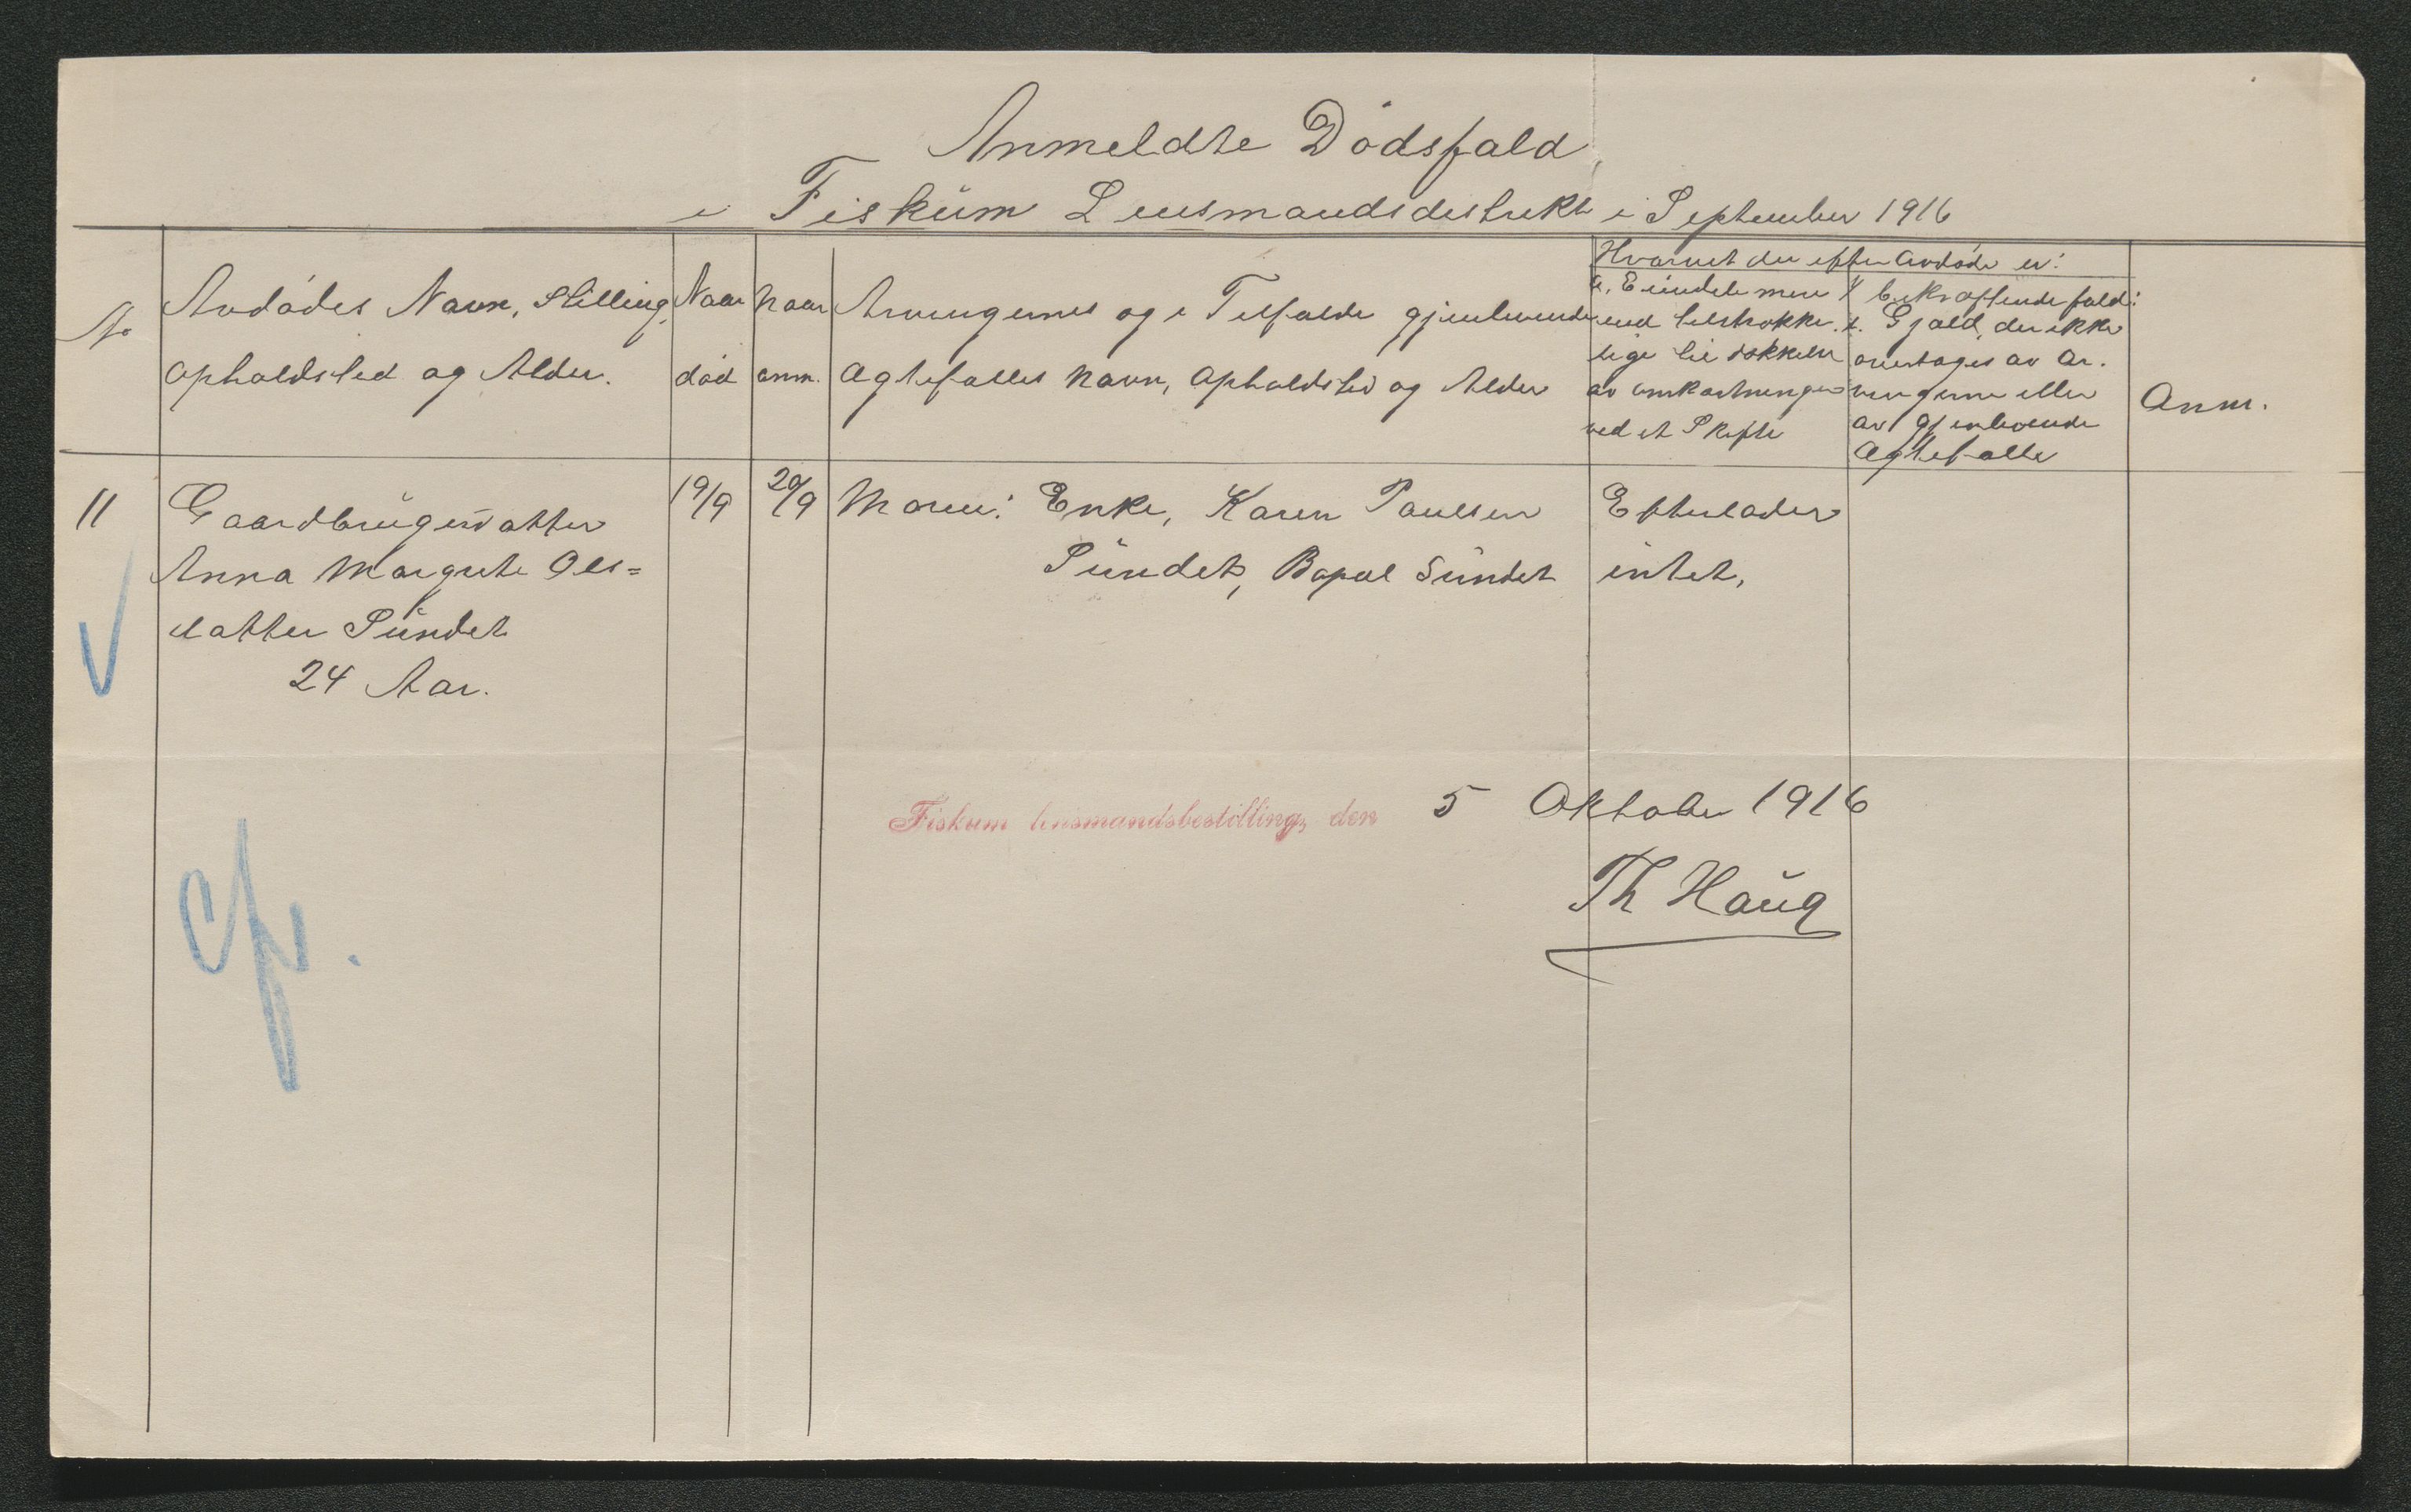 Anmeldte Dødsfald
i Fiskum Lensmandsdistrikt i September 1916
No
Avdødes Navn, Stilling,
Opholdsted og Alder.
Naar
død
Naar
anm.
Arvingernes og i Tilfælde gjenlevende
Ægtefælles Navn, Opholdsted og Alder
Hvorvidt der efter Avdøde er:
a. Eiendele mere
end tilstrække-
lige til dækkelse
av omkostningen
ved et Skifte
I bekræftende fald:
b. Gjæld, der ikke
overtages av Ar-
vingerne eller
av gjenlevende
Ægtefælle
Anm.
11
Gaardbrugerdatter
Anna Margrete Ols=
datter Sundet
24 Aar.
19/9
20/9
Moren: Enke, Karen Paulsen
Sundet, Bopæl Sundet
Efterlader
intet,
Fiskum lensmandsbestilling, den 5 Oktober 1916
Th Haug